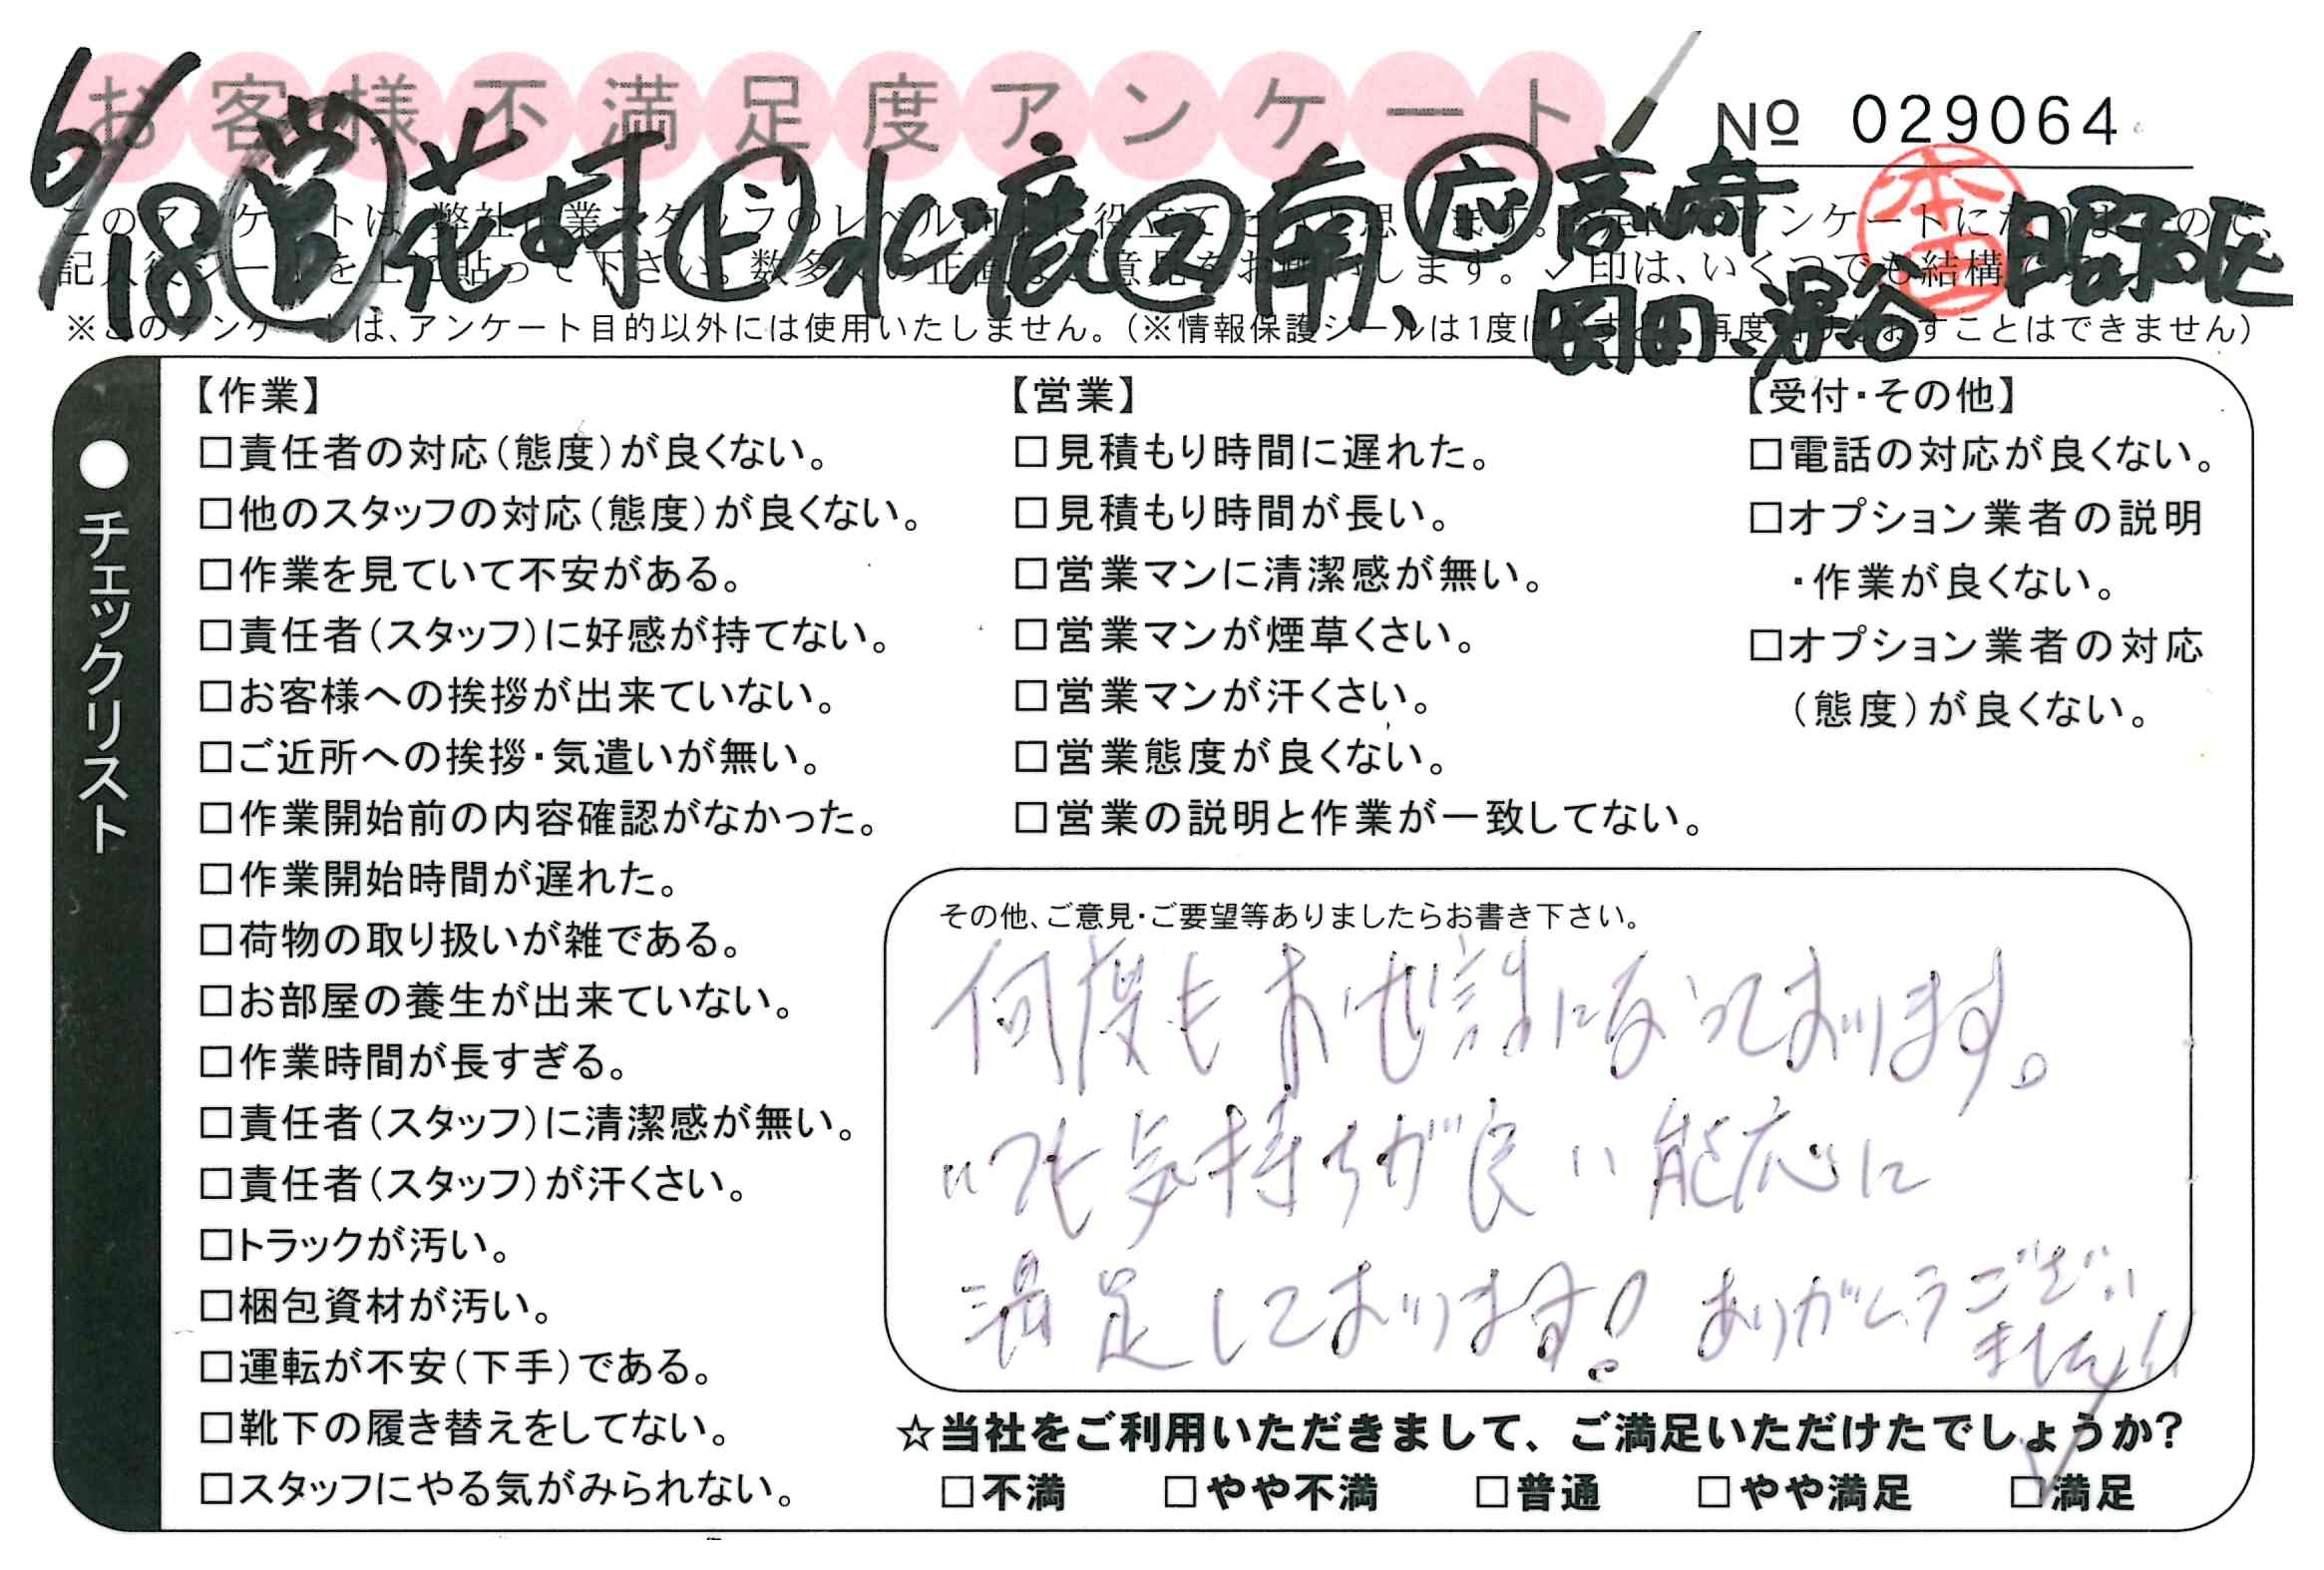 お客様不満足度アンケート
№ 029064
6/18 営 花村 上 水鹿 ヌ 南、応 高崎
岡田、渋谷
本田
昭和区
※このアンケートは、アンケート目的以外には使用いたしません。(※情報保護シールは1度 ことはできません)
●チェックリスト
【作業】
□責任者の対応(態度)が良くない。
□他のスタッフの対応(態度)が良くない。
□作業を見ていて不安がある。
□責任者(スタッフ)に好感が持てない。
□お客様への挨拶が出来ていない。
□ご近所への挨拶・気遣いが無い。
□作業開始前の内容確認がなかった。
□作業開始時間が遅れた。
□荷物の取り扱いが雑である。
□お部屋の養生が出来ていない。
□作業時間が長すぎる。
□責任者(スタッフ)に清潔感が無い。
□責任者(スタッフ)が汗くさい。
□トラックが汚い。
□梱包資材が汚い。
□運転が不安(下手)である。
□靴下の履き替えをしてない。
□スタッフにやる気がみられない。
【営業】
□見積もり時間に遅れた。
□見積もり時間が長い。
□営業マンに清潔感が無い。
□営業マンが煙草くさい。
□営業マンが汗くさい。
□営業態度が良くない。
□営業の説明と作業が一致してない。
【受付・その他】
□電話の対応が良くない。
□オプション業者の説明
・作業が良くない。
□オプション業者の対応
(態度)が良くない。
その他、ご意見・ご要望等ありましたらお書き下さい。
何度もお世話になっております。
いつも気持ちが良い能応に
満足しております! ありがとうござい
ました!!
☆当社をご利用いただきまして、ご満足いただけたでしょうか?
□不満 □やや不満 □普通 □やや満足 ☑満足